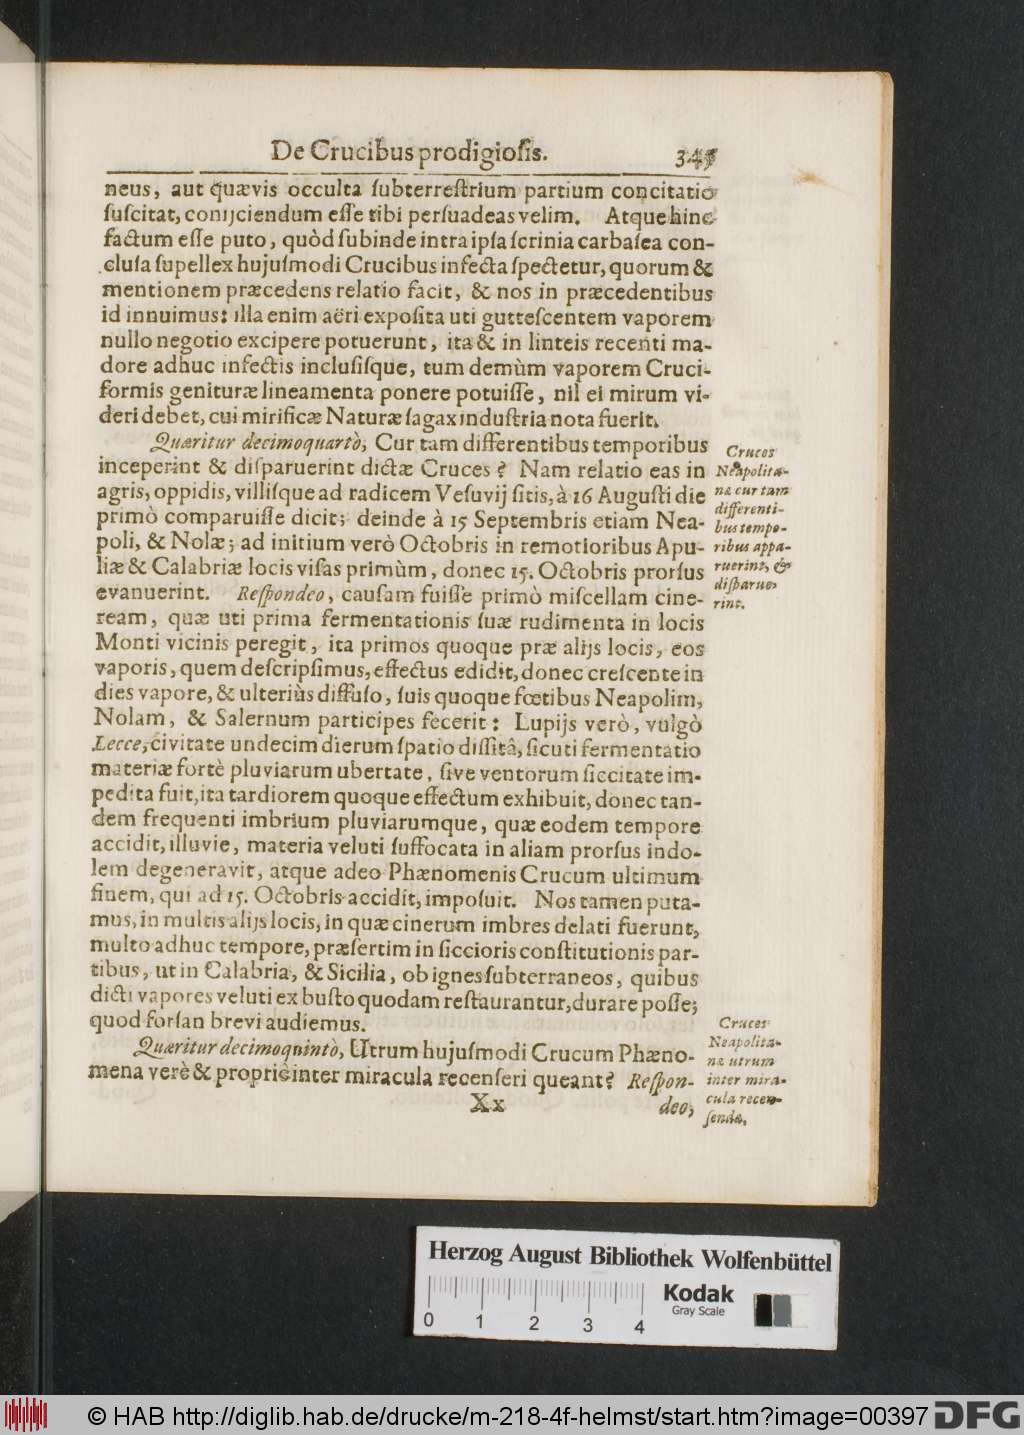 De Crucibus prodigiosis. 345
neus, aut quævis occulta ſubterreſtrium partium concitatio
ſuſcitat, conijciendum eſſe tibi perſuadeas velim. Atque hinc
factum eſſe puto, quòd ſubinde intra ipſa ſcrinia carbaſea con-
cluſa ſupellex hujuſmodi Crucibus infecta ſpectetur, quorum &
mentionem præcedens relatio facit, & nos in præcedentibus
id innuimus: illa enim aëri expoſita uti gutteſcentem vaporem
nullo negotio excipere potuerunt, ita & in linteis recenti ma-
dore adhuc infectis incluſiſque, tum demùm vaporem Cruci-
formis genituræ lineamenta ponere potuiſſe, nil ei mirum vi-
deri debet, cui mirificæ Naturæ ſagax induſtria nota fuerit.
Quæritur decimoquartò, Cur tam differentibus temporibus
inceperint & diſparuerint dictæ Cruces? Nam relatio eas in
agris, oppidis, villiſque ad radicem Veſuvij ſitis, à 16 Auguſti die
primò comparuiſſe dicit; deinde à 15 Septembris etiam Nea-
poli, & Nolæ; ad initium verò Octobris in remotioribus Apu-
liæ & Calabriæ locis viſas primùm, donec 15. Octobris prorſus
evanuerint. Reſpondeo, cauſam fuiſſe primò miſcellam cine-
ream, quæ uti prima fermentationis ſuæ rudimenta in locis
Monti vicinis peregit, ita primos quoque præ alijs locis, eos
vaporis, quem deſcripſimus, effectus edidit, donec creſcente in
dies vapore, & ulteriùs diffuſo, ſuis quoque fœtibus Neapolim,
Nolam, & Salernum participes fecerit: Lupijs verò, vulgò
Lecce, civitate undecim dierum ſpatio diſſitâ, ſicuti fermentatio
materiæ fortè pluviarum ubertate, ſive ventorum ſiccitate im-
pedita fuit, ita tardiorem quoque effectum exhibuit, donec tan-
dem frequenti imbrium pluviarumque, quæ eodem tempore
accidit, illuvie, materia veluti ſuffocata in aliam prorſus indo-
lem degeneravit, atque adeo Phænomenis Crucum ultimum
finem, qui ad 15. Octobris accidit, impoſuit. Nos tamen puta-
mus, in multis alijs locis, in quæ cinerum imbres delati fuerunt,
multo adhuc tempore, præſertim in ſiccioris conſtitutionis par-
tibus, ut in Calabria, & Sicilia, ob ignes ſubterraneos, quibus
dicti vapores veluti ex buſto quodam reſtaurantur, durare poſſe;
quod forſan brevi audiemus.
Quæritur decimoquintò, Utrum hujuſmodi Crucum Phæno-
mena verè & propriè inter miracula recenſeri queant? Reſpon-
Xx deo,
Cruces
Neapolita-
næ cur tam
differenti-
bus tempo-
ribus appa-
ruerint, &
diſparue-
rint.
Cruces
Neapolita-
næ utrum
inter mira-
cula recen-
ſendæ.
Herzog August Bibliothek Wolfenbüttel
0 1 2 3 4
Kodak
Gray Scale
© HAB http://diglib.hab.de/drucke/m-218-4f-helmst/start.htm?image=00397 DFG